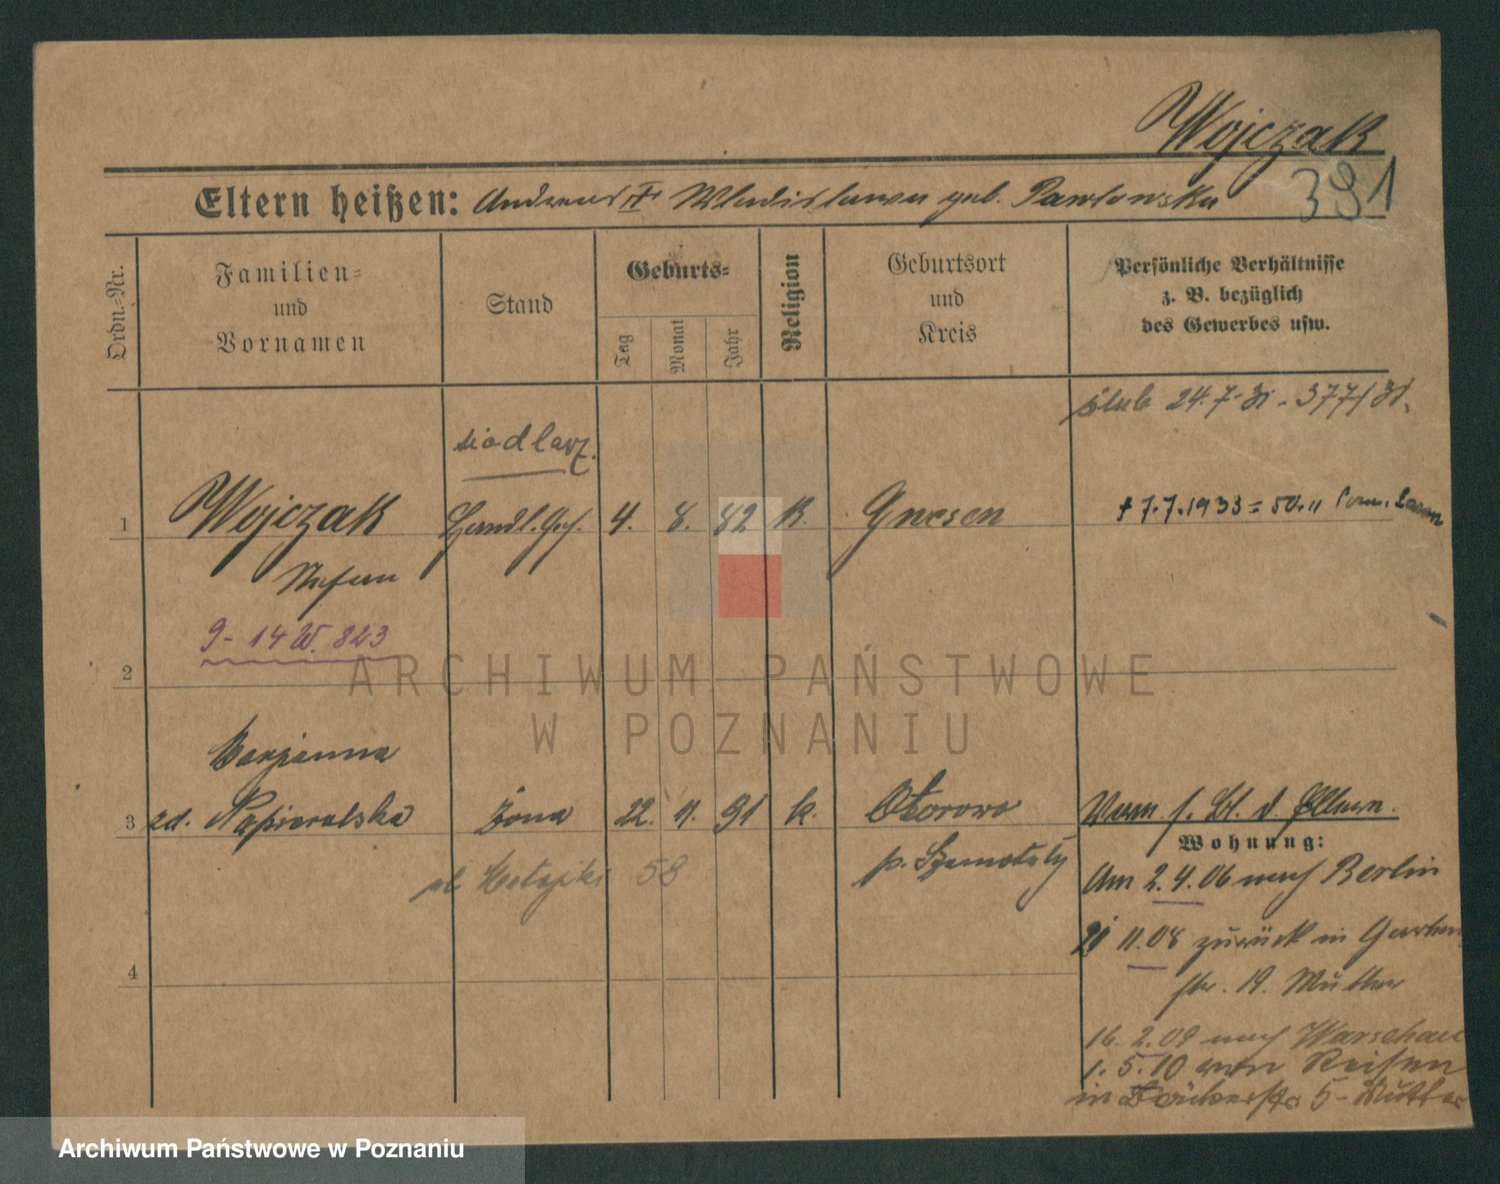 Wojczak
Eltern heißen: Andreas Wladislawa geb. Pawlowska
391
Ordn.-Nr.
Familien-
und
Vornamen
Stand
Geburts-
Tag
Monat
Jahr
Religion
Geburtsort
und
Kreis
Persönliche Verhältnisse
z. B. bezüglich
des Gewerbes usw.
ślub 24.7.31 - 377/31.
siodlarz.
1 Wojczak Handl. Geh. 4. 8. 82 K. Gnesen † 7.7.1933 =
Stefan
9- 14 W. 823
2
Marjanna
3 zd. Napieralska żona 22. 11. 91 k. Otorowo Verm. s. Bl. d. Eltern.
Wohnung:
p. Szamotuły
ul Matejki 58
Am 2.4.06 nach Berlin
21 11.08 zurück in Garten
str. 19. Mutter
4
16. 2.09 nach Warschau
1. 5.10 von Reisen
in 5 - Mutter
ARCHIWUM PAŃSTWOWE
W POZNANIU
Archiwum Państwowe w Poznaniu